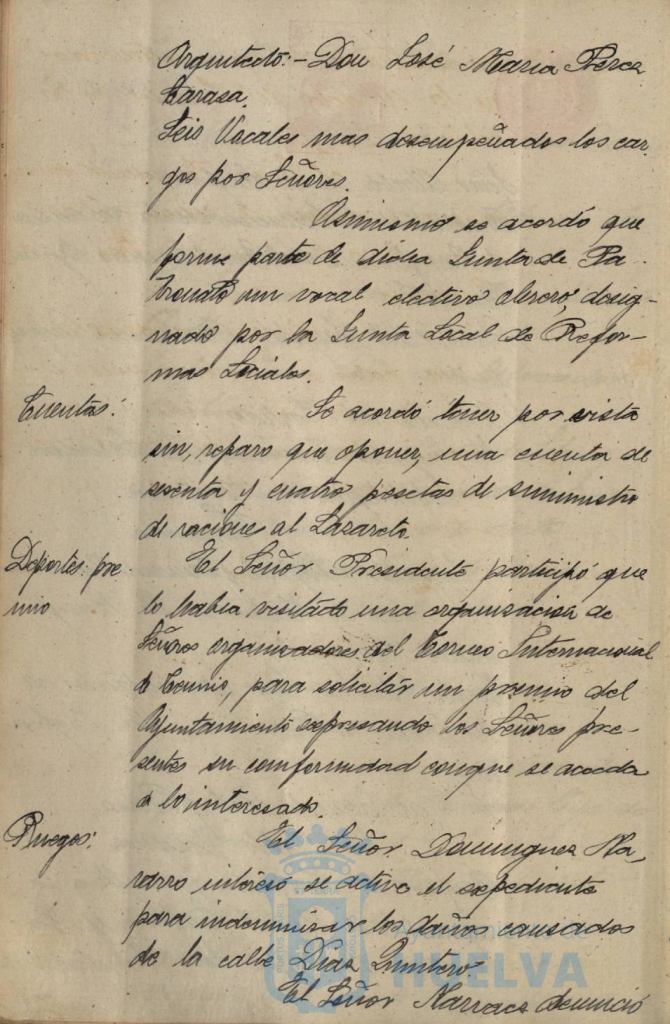 Arquitecto:- Don José Maria Perez
Carasa.
Seis Vocales mas desempeñados los car-
gos por Señores.
Asimismo se acordó que
forme parte de dicha Junta de Pa-
tronato un vocal electivo obrero, desig-
nado por la Junta Local de Refor-
mas Sociales.
Cuentas: Se acordó tener por vista
sin, reparo que oponer, una cuenta de
sesenta y cuatro pesetas de suministro
de raciones al Lazareto.
Deportes: pre- El Señor Presidente participó que
mio lo habia visitado una organizacion de
Señores organizadores del Torneo Internacional
de Tennis, para solicitar un premio del
Ayuntamiento expresando los Señores pre-
sentes su conformidad conque se acceda
a lo interesado.
Ruegos: El Señor Dominguez Na-
varro interesó se active el expediente
para indemnizar los daños causados
de la calle Diaz Quintero.
HUELVA
El Señor Narvaez denunció